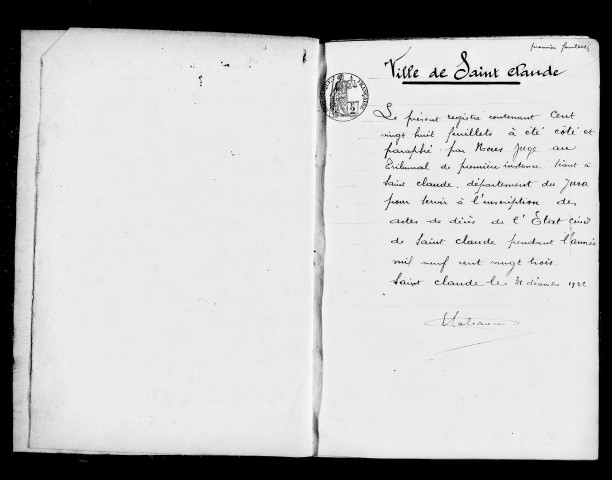 premier feuillet
Ville de Saint Claude
Le présent registre contenant Cent
vingt huit feuillets à été côté et
paraphé par Nous Juge au
Tribunal de première instance séant à
Saint Claude, département du Jura
pour servir à l'inscription des
actes de décès de l'État Civil
de Saint Claude pendant l'année
mil neuf cent vingt trois.
Saint Claude le 31 décembre 1922